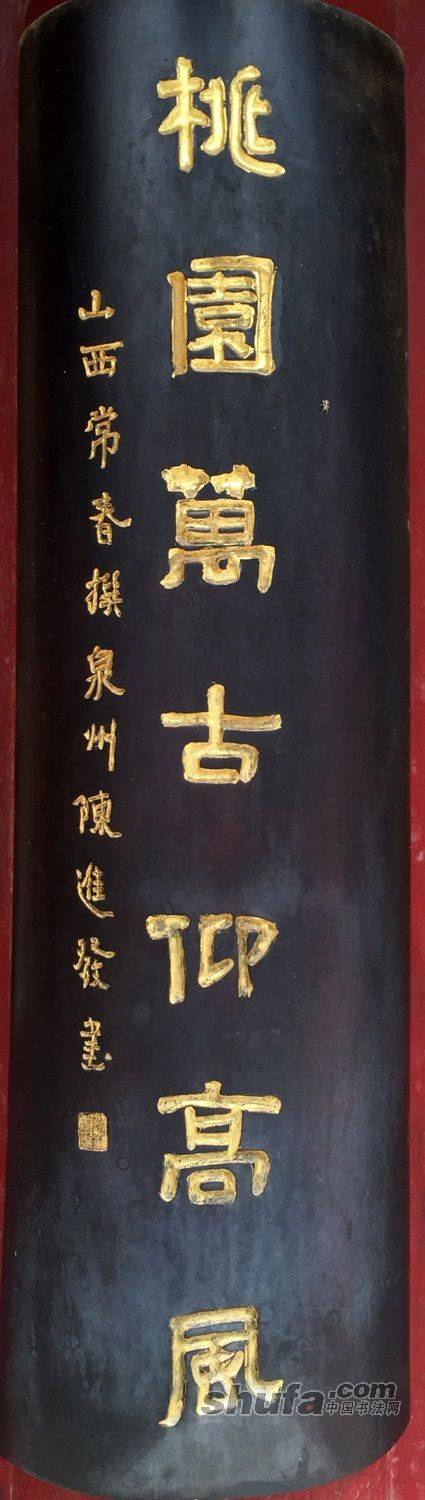 桃園萬古仰高風
山西常春撰泉州陳進發書
shufa.com
中国书法网